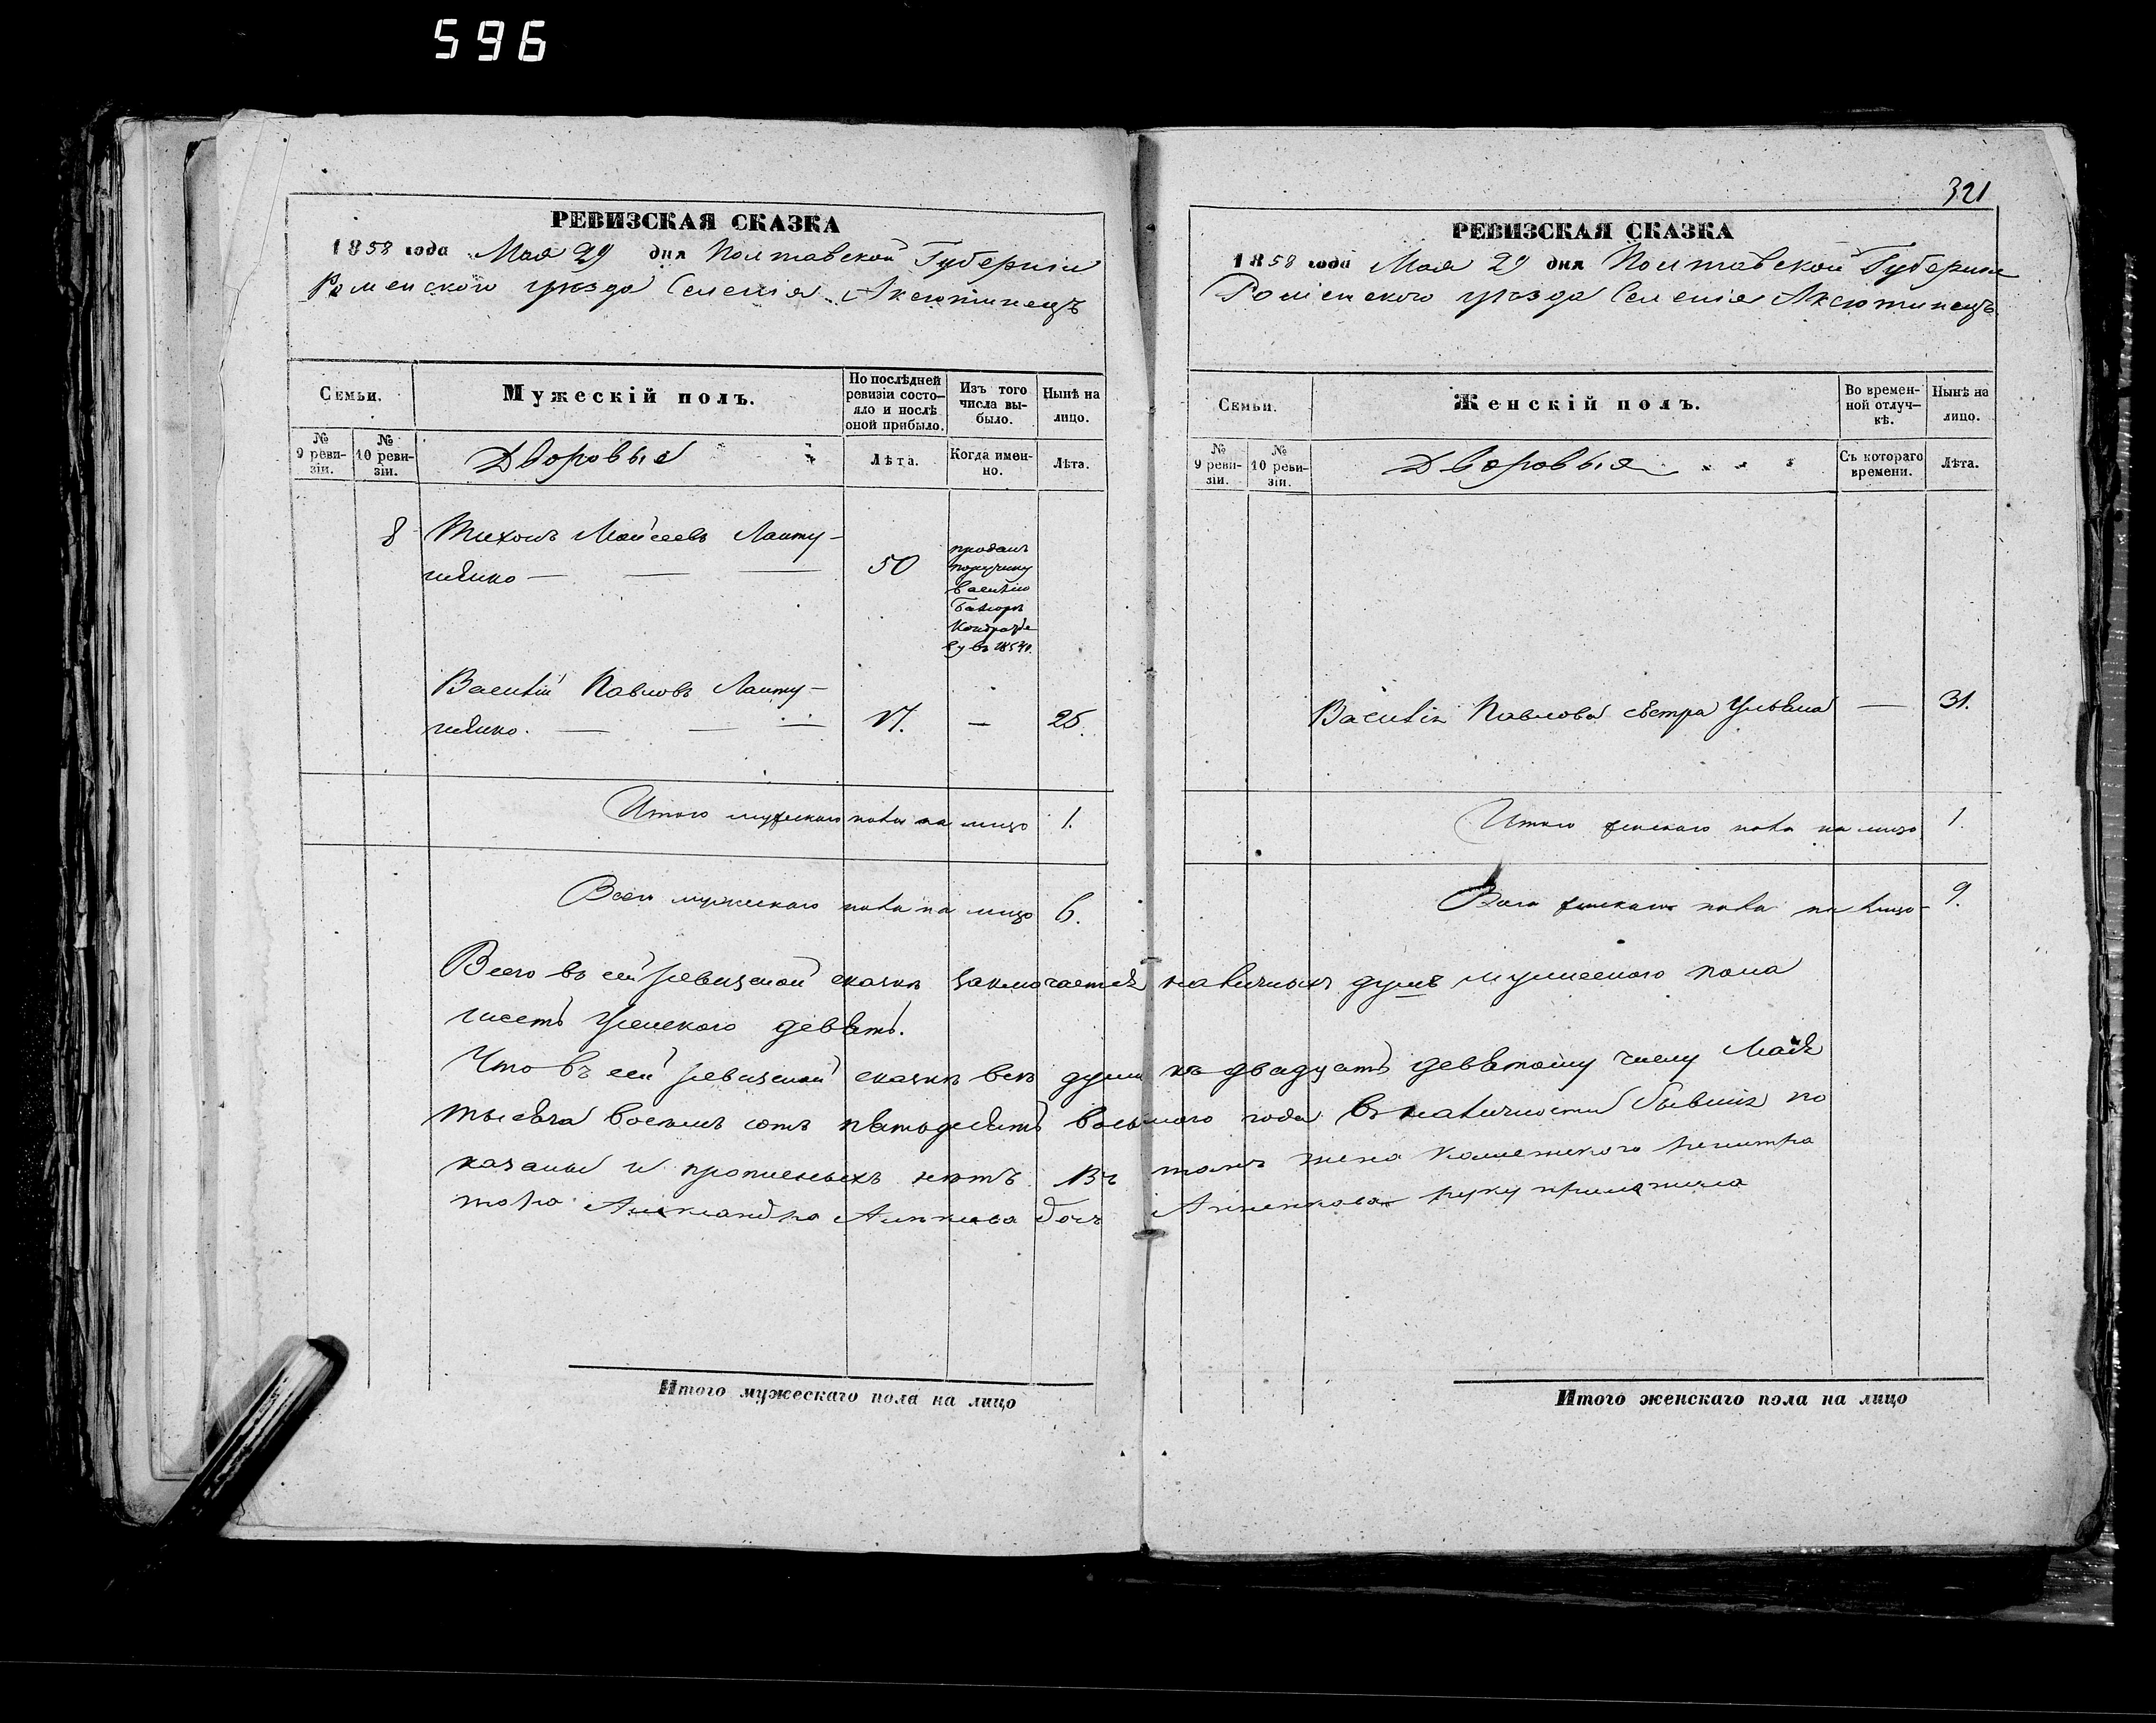 596
РЕВИЗСКАЯ СКАЗКА
1858 года Мая 29 дня Полтавской Губерніи
Роменского уѣзда Селенія Аксютинецъ
Семьи.
Мужескій полъ.
По послѣдней ревизіи состояло и послѣ оной прибыло.
Изъ того числа выбыло.
Нынѣ на лицо.
№ 9 ревизіи.
№ 10 ревизіи.
Дворовые
Лѣта.
Когда именно.
Лѣта.
8 Тихонъ Мойсеевъ Лапту-
50
проданъ
поручику
Василію
Кондратье
ву въ
Василій Павловъ Лапту-
17. — 25.
Итого мужескаго пола на лицо 1.
Всего мужескаго пола на лицо 6.
321
РЕВИЗСКАЯ СКАЗКА
1858 года Мая 29 дня Полтавской Губерніи
Роменского уѣзда Селенія Аксютинецъ
Семьи.
Женскій полъ.
Во временной отлучкѣ.
Нынѣ на лицо.
№ 9 ревизіи.
№ 10 ревизіи.
Дворовыя
Съ котораго времени.
Лѣта.
Василія Павлова сѣстра Ульяна — 31.
Итого женскаго пола на лицо 1.
Всего женскаго пола на лицо 9.
Всего въ сей ревизской сказкѣ заключается наличныхъ душъ мужеского пола
шесть женского девять.
Что въ сей ревизской сказкѣ всѣ души къ двадцать девятому числу Мая
тысяча восемь сотъ пятьдесятъ восьмого года въ наличности бывшія по
казаны и прописныхъ нѣтъ. Въ томъ жена Колежского регистра
тора Александра Дочь руку приложила
Итого мужескаго пола на лицо
Итого женскаго пола на лицо